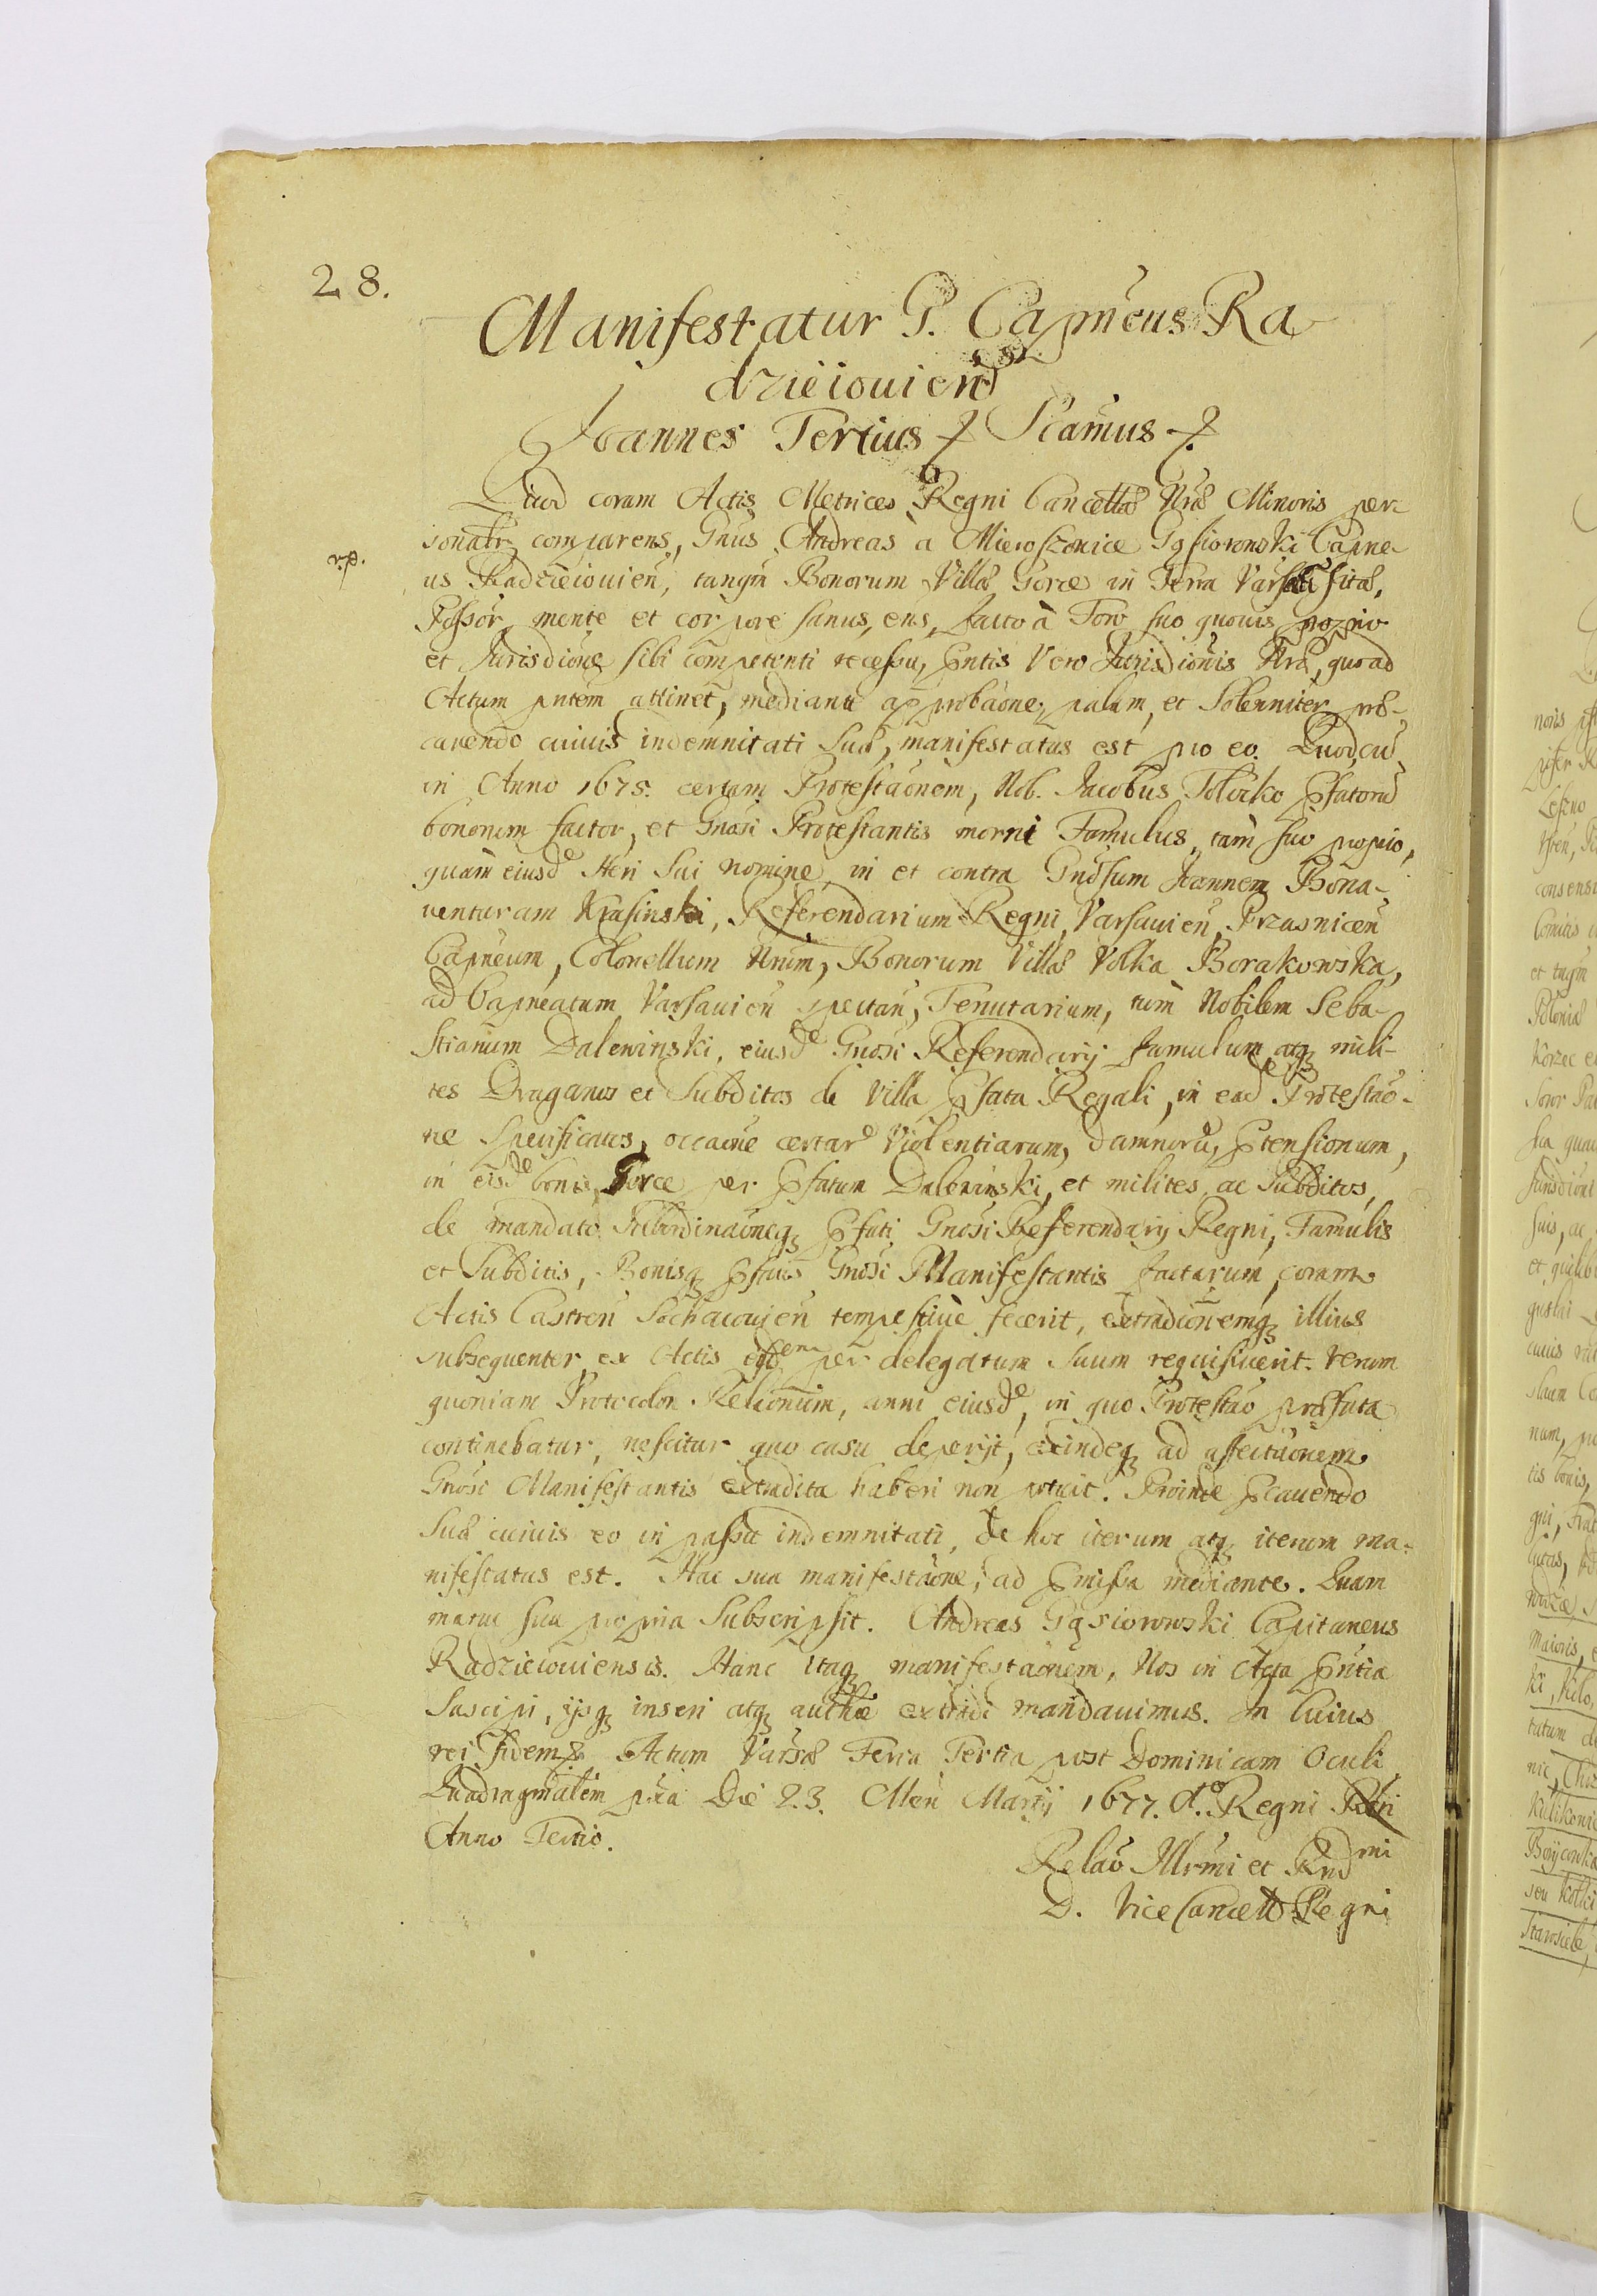 28.
Manifestatur G. Capneus Ra
dzieiouien
Joannes Tertius & Scamus &.
Quod coram Actis Metrices Regni Cancellæ Nræ Minoris per-
sonatr comparens, Gnus Andreas à Mieroszonice Gąsiorowski Capne-
r.p.
us Radzieiouien, tanqm Bonorum Villæ Gorce in Terra Varsa sitæ,
Possor, mente et corpore sanus, ens, facto à Foro suo quouis proprio
et Jurisdione sibi competenti recessu, Pntis Vero Jurisdionis Nræ, quoad
Actum pntem attinet, mediante approbaone, palam, et Solenniter præ-
cauendo cuiuis indemnitati Suæ, manifestatus est pro eo. Quod, cu
in Anno 1675. certam Protestaonem, Nob. Jacobus Tolocko Pfatoru
bonorum factor, et Gnosi Protestantis morni Famulus, tam suo proprio,
quam eiusde Heri Sui nomine, in et contra Gnosum Joannem Bona-
uenturam Krasinski, Referendarium Regni, Varsauien, Przasnicen
Capneum, Colonellum Nrum, Bonorum Villæ Volka Borakowska,
ad Capneatum Varsauien spectan, Tenutarium, tum Nobilem Seba-
stianum Dalewinski, eiusde Gnosi Referendarij famulum atq mili-
tes Draganos et Subditos de Villa Pfata Regali, in eade Protestao-
ne Specificatos, occaone certar Violentiarum, damnoru, Ptensionum,
in eisde bonis Gorce per Pfatum Dalewinski, et milites, ac Subditos,
de mandato Subordinaoneq Pfati Gnosi Referendarij Regni, Famulis
et Subditis, Bonisq Pfatis Gnosi Manifestantis factarum, coram
Actis Castren Sochacouien tempestiue fecerit, extradionemq illius
subsequenter ex Actis eisdem per delegatum Suum requisiuerit. Verum
quoniam Protocolon Relaonum, anni eiusde, in quo Protestao præfata
continebatur, nescitur quo casu deperijt, exindeq ad affectaonem
Gnosi Manifestantis extradita haberi non potuit. Proinde Pcauendo
Suæ cuiuis eo in passu indemnitati, de hoc iterum atq iterum ma-
nifestatus est. Hac sua manifestaone, ad Pmissa mediante. Quam
manu sua propria Subscripsit. Andreas Gąsiorowski Capitaneus
Radzieiouiensis. Hanc itaq manifestaonem, Nos in Acta Pntia
Suscipi, ijsq inseri atq authæ extradi mandauimus. In Cuius
rei fidem &. Actum Varsæ Feria Tertia post Dominicam Oculi
Quadragmalem pxa Die 23. Men Martij 1677. Ao. Regni Nri
Anno Tertio.
Relao Illrmi et Rndmi
D. ViceCancell Regni